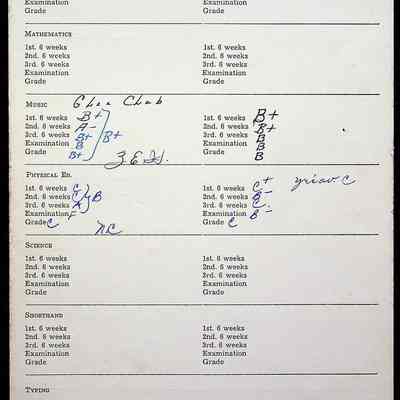 3rd. 6 weeks 3rd. 6 weeks
Examination Examination
Grade Grade
MATHEMATICS
1st. 6 weeks 1st. 6 weeks
2nd. 6 weeks 2nd. 6 weeks
3rd. 6 weeks 3rd. 6 weeks
Examination Examination
Grade Grade
MUSIC Glee Club
1st. 6 weeks B+ 1st. 6 weeks B+
2nd. 6 weeks A- 2nd. 6 weeks B+
3rd. 6 weeks B+ B+ 3rd. 6 weeks B
Examination B Examination B
Grade B+ Grade B
PHYSICAL ED.
1st. 6 weeks C 1st. 6 weeks C+
2nd. 6 weeks B 2nd. 6 weeks B-
3rd. 6 weeks A 3rd. 6 weeks C
Examination F Examination B-
Grade C Grade C
SCIENCE
1st. 6 weeks 1st. 6 weeks
2nd. 6 weeks 2nd. 6 weeks
3rd. 6 weeks 3rd. 6 weeks
Examination Examination
Grade Grade
SHORTHAND
1st. 6 weeks 1st. 6 weeks
2nd. 6 weeks 2nd. 6 weeks
3rd. 6 weeks 3rd. 6 weeks
Examination Examination
Grade Grade
TYPING